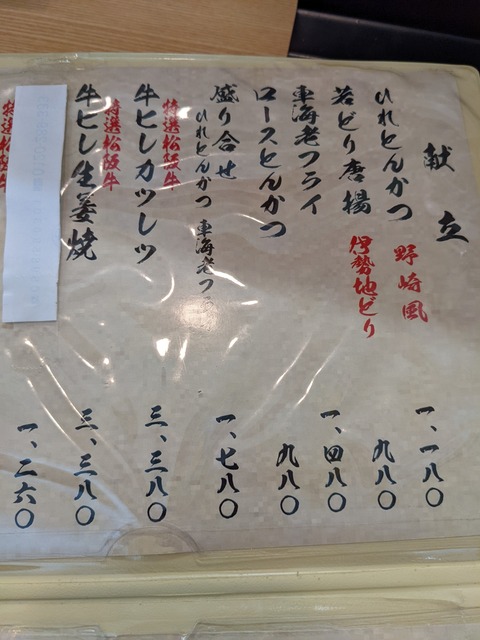 献立
ひれとんかつ 野崎風 一、一八〇
若どり唐揚 伊勢地どり 九八〇
車海老フライ 一、四八〇
ロースとんかつ 九八〇
盛り合せ ひれとんかつ 車海老フラ 一、七八〇
特選松阪牛
牛ヒレカツレツ 三、三八〇
特選松阪牛
牛ヒレ生姜焼 三、三八〇
特選松阪牛
一、二六〇